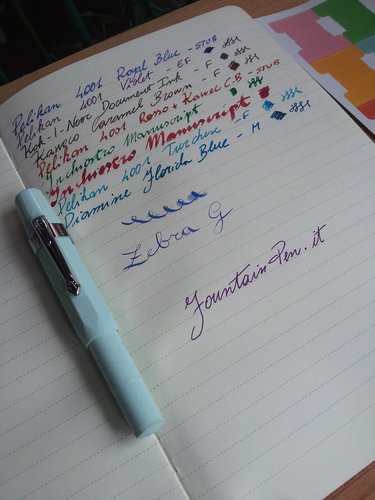 Pelikan 4001 Royal Blue - STUB
Pelikan 4001 Violet - EF
Koh-I-Noor Document Ink - F
Kaweco Caramel Brown - F
Pelikan 4001 Rosso + Kaweco C.B. - STUB
Inchiostro Manuscript
Inchiostro Manuscript
Pelikan 4001 Turchese - F
Diamine Florida Blue - M
Zebra G
FountainPen.it